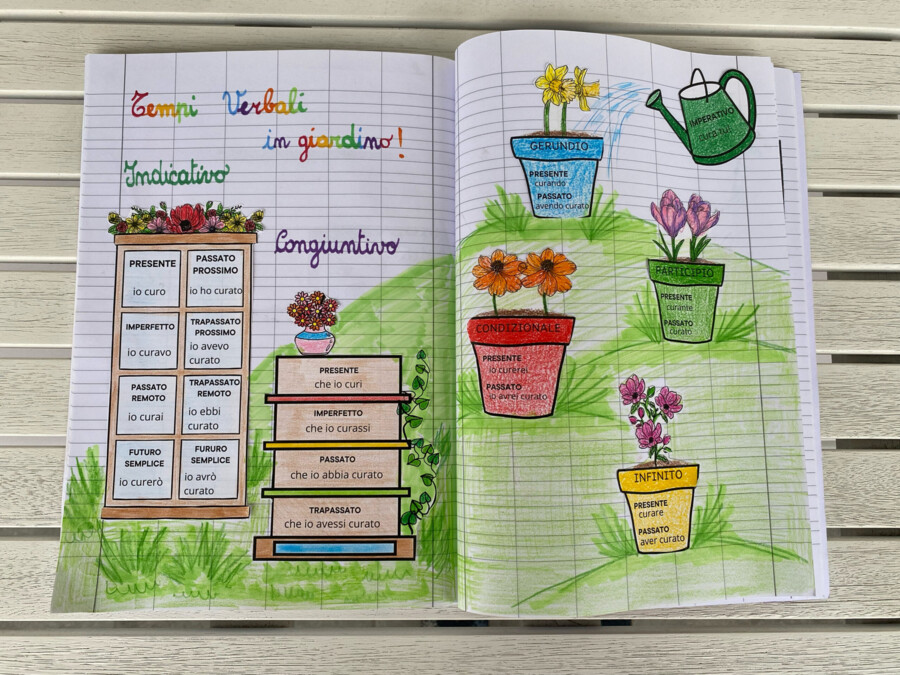 Tempi Verbali
in giardino!
Indicativo
PRESENTE
io curo
PASSATO
PROSSIMO
io ho curato
IMPERFETTO
io curavo
TRAPASSATO
PROSSIMO
io avevo
curato
PASSATO
REMOTO
io curai
TRAPASSATO
REMOTO
io ebbi
curato
FUTURO
SEMPLICE
io curerò
FURURO
SEMPLICE
io avrò
curato
Congiuntivo
PRESENTE
che io curi
IMPERFETTO
che io curassi
PASSATO
che io abbia curato
TRAPASSATO
che io avessi curato
GERUNDIO
PRESENTE
curando
PASSATO
avendo curato
IMPERATIVO
cura tu!
PARTICIPIO
PRESENTE
curante
PASSATO
curato
CONDIZIONALE
PRESENTE
io curerei
PASSATO
io avrei curato
INFINITO
PRESENTE
curare
PASSATO
aver curato